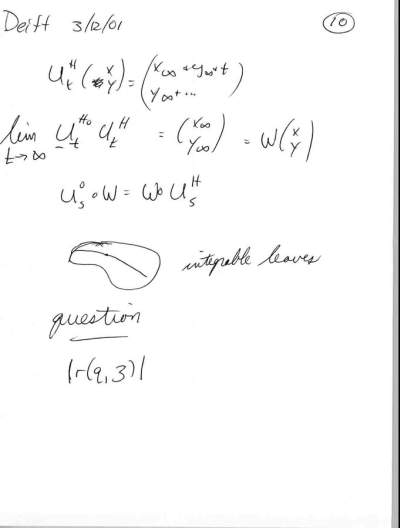 Deift 3/12/01 10
U_t^H (x y) = (x∞ + y∞ t y∞ + ...)
lim t→∞ U_{-t}^{H0} U_t^H = (x∞ y∞) = W (x y)
U_s^0 ∘ W = W∘ U_s^H
integrable leaves
question
|r(q,3)|